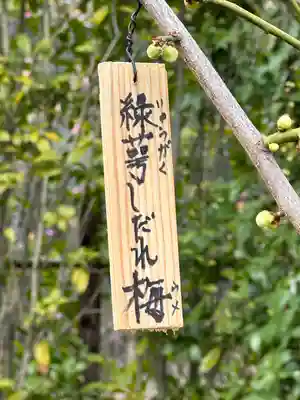 緑萼しだれ梅
りょうがく
うメ